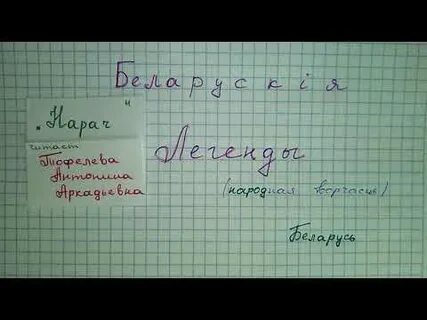 Беларускія
„Нарач"
читает
Тофелева
Антонина
Аркадьевна
Легенды
(народная творчасць)
Беларусь